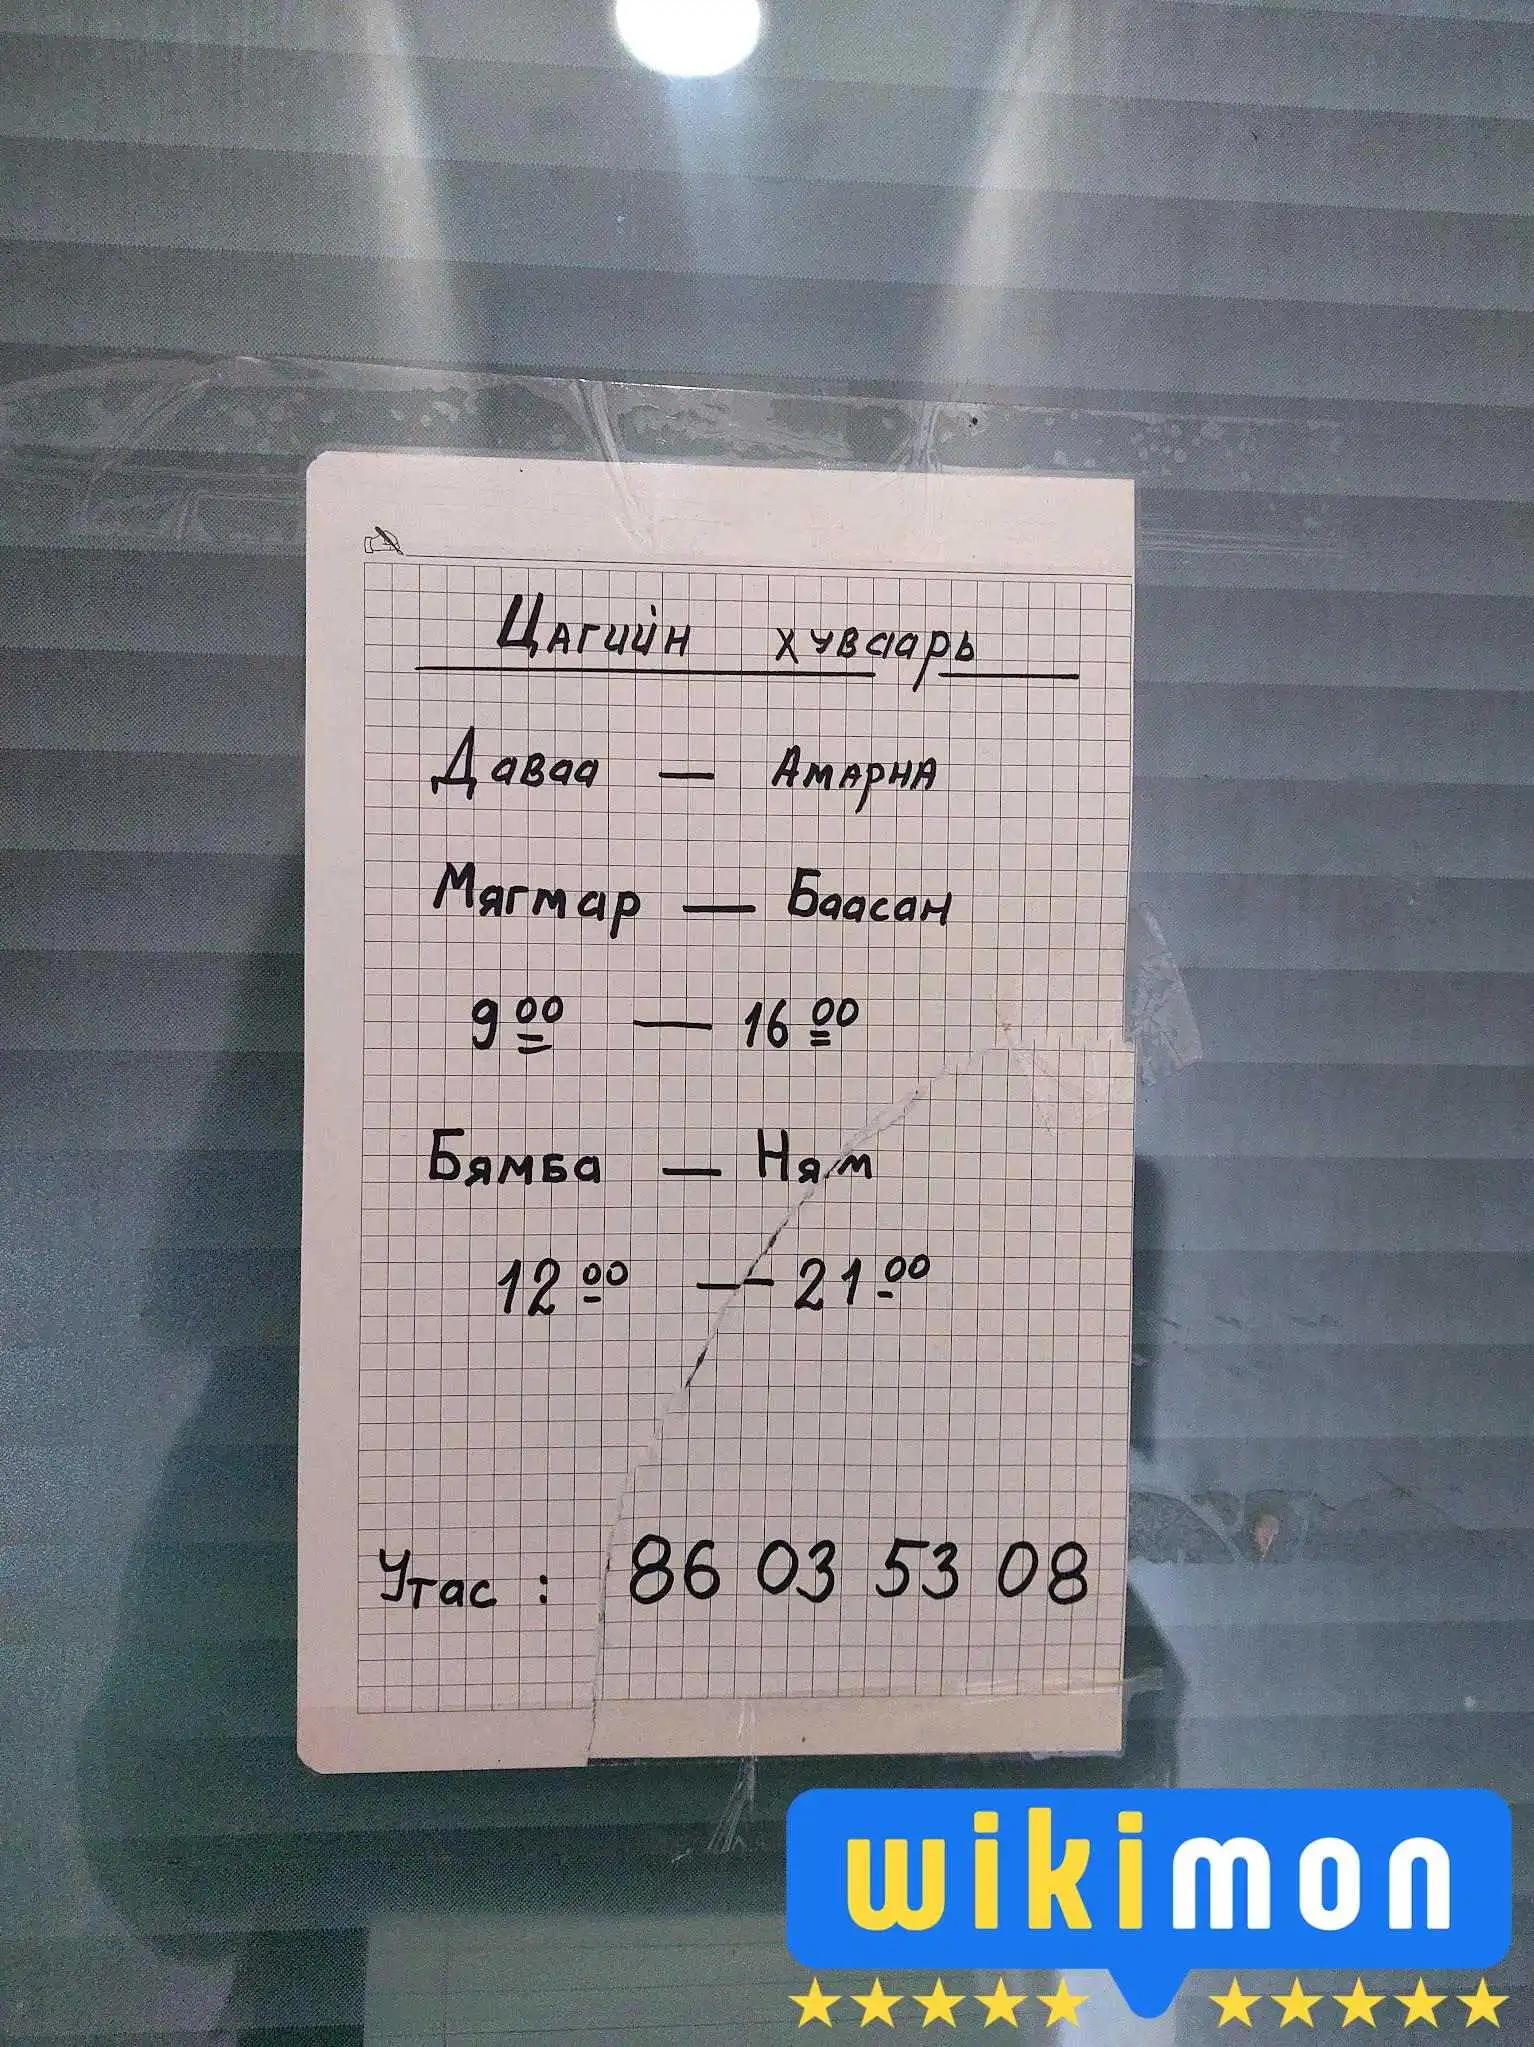 Цагийн хуваарь
Даваа — Амарна
Мягмар — Баасан
9 00 — 16 00
Бямба — Ням
12 00 — 21 00
Утас : 86 03 53 08
wikimon